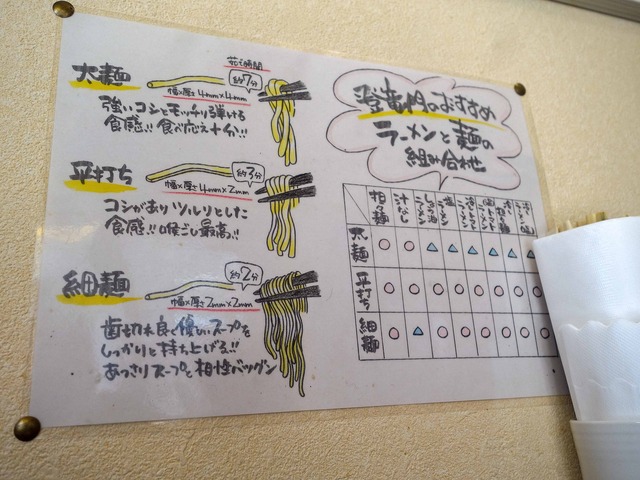 太麺
茹で時間
約7分
幅×厚さ 4mm×4mm
強いコシとモッチリ弾ける
食感!! 食べ応え十分!!
平打ち
約3分
幅×厚さ 4mm×2mm
コシがありツルリとした
食感!! 喉ごし最高!!
細麺
約2分
幅×厚さ 2mm×2mm
歯切れ良く優しいスープを
しっかりと持ち上げる!!
あっさりスープと相性バツグン
登竜門のおすすめ
ラーメンと麺の
組み合わせ
太麺
平打ち
細麺